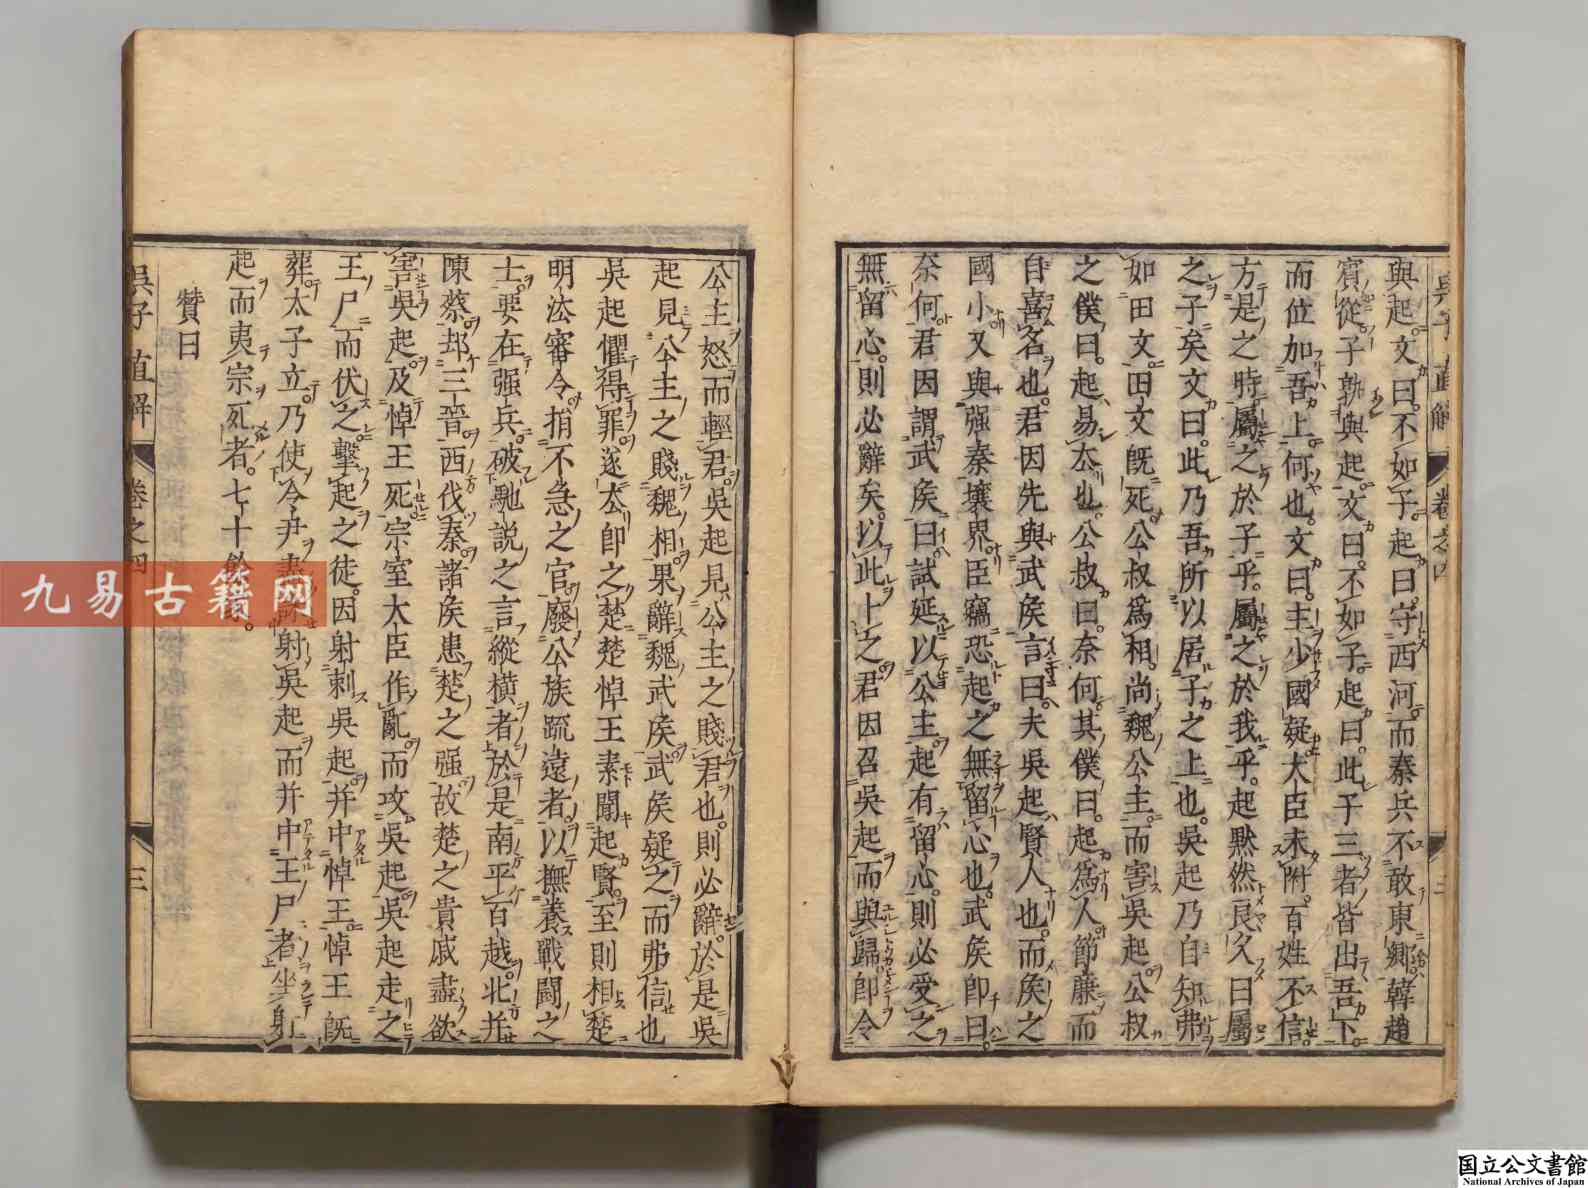 與起。文曰。不如子。起曰。守西河。而秦兵不敢東鄉。韓趙
賓從。子孰與起。文曰。不如子。起曰。此子三者皆出吾下。
而位加吾上。何也。文曰。主少國疑。大臣未附。百姓不信。
方是之時。屬之於子乎。屬之於我乎。起黙然良久曰屬
之子矣。文曰。此乃吾所以居子之上也。吳起乃自知弗
如田文。田文既死。公叔爲相。尚魏公主。而害吳起。公叔
之僕曰。起易去也。公叔曰。奈何。其僕曰。起爲人節廉而
自喜名也。君因先與武矦言曰。夫吳起賢人也。而矦之
國小。又與强秦壤界。臣竊恐起之無留心也。武矦即曰。
奈何。君因謂武矦曰。試延以公主。起有留心。則必受之。
無留心。則必辭矣。以此卜之。君因召吳起而與歸。即令
公主怒而輕君。吳起見公主之賤君也。則必辭。於是吳
起見公主之賤魏相。果辭魏武矦。武矦疑之而弗信也
吳起懼得罪。遂去即之楚。楚悼王素聞起賢。至則相楚
明法審令。捐不急之官。廢公族疏遠者。以撫養戰鬬之
士。要在强兵。破馳説之言縱横者。於是南平百越。北并
陳蔡。却三晋。西伐秦。諸矦患楚之强。故楚之貴戚盡欲
害吳起。及悼王死。宗室大臣作亂。而攻吳起。吳起走之
王尸而伏之。擊起之徒。因射刺吳起。并中悼王。悼王既
葬。太子立。乃使令尹盡誅射吳起而并中王尸者。坐射
起而夷宗死者。七十餘家。
賛曰
吳子直解
卷之四
三
九易古籍网
国立公文書館
National Archives of Japan